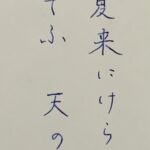 夏来にけら
てふ 天の